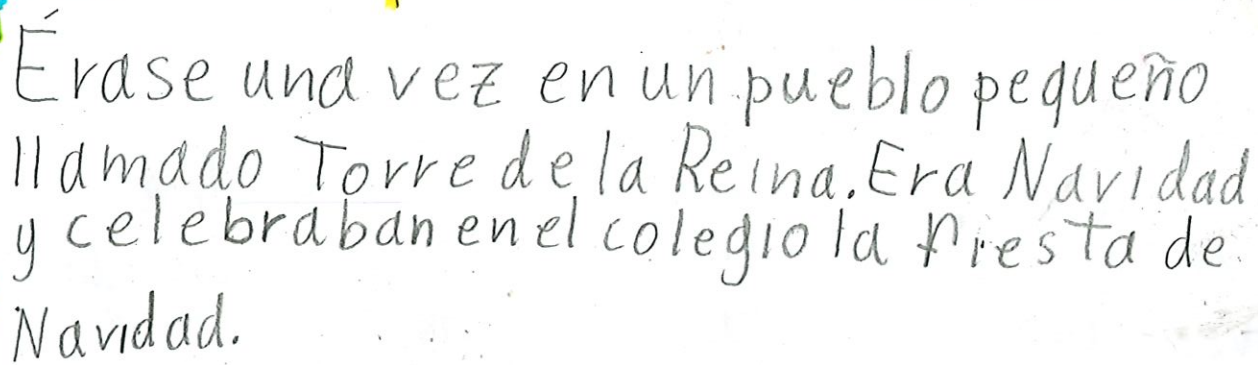 Érase una vez en un pueblo pequeño
llamado Torre de la Reina. Era Navidad
y celebraban en el colegio la fiesta de
Navidad.